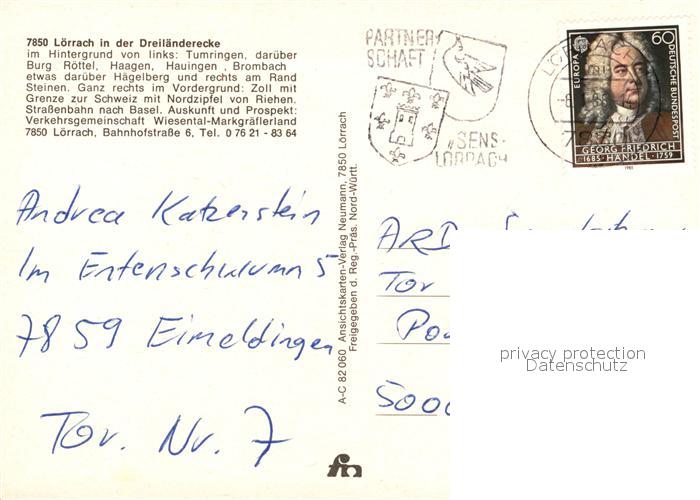 7850 Lörrach in der Dreiländerecke
im Hintergrund von links: Tumringen, darüber
Burg Röttel, Haagen, Hauingen, Brombach
etwas darüber Hägelberg und rechts am Rand
Steinen. Ganz rechts im Vordergrund: Zoll mit
Grenze zur Schweiz mit Nordzipfel von Riehen.
Straßenbahn nach Basel. Auskunft und Prospekt:
Verkehrsgemeinschaft Wiesental-Markgräflerland
7850 Lörrach, Bahnhofstraße 6, Tel. 0 76 21 - 83 64
Andrea Katzerstein
Im Entenschwumm 5
7859 Eimeldingen
Tor. Nr. 7
A-C 82 060 Ansichtskarten-Verlag Neumann, 7850 Lörrach
Freigegeben d. Reg.-Präs. Nord-Württ.
PARTNER-
SCHAFT
„SENS-
LÖRRACH
LÖRRACH
60
EUROPA
DEUTSCHE BUNDESPOST
GEORG FRIEDRICH
1685 · HÄNDEL · 1759
1985
ARD
Tor
5000
privacy protection
Datenschutz